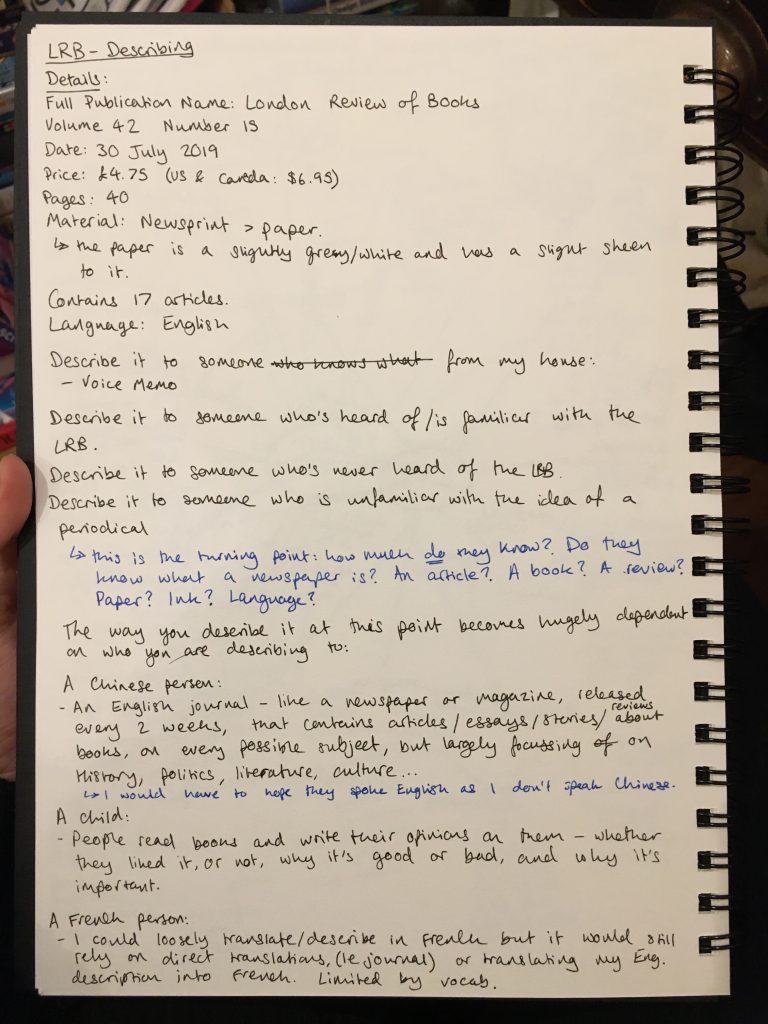 LRB - Describing
Details:
Full Publication Name: London Review of Books
Volume 42 Number 15
Date: 30 July 2019
Price: £4.75 (US & Canada: $6.95)
Pages: 40
Material: Newsprint > paper.
↳ the paper is a slightly grey/white and has a slight sheen
to it.
Contains 17 articles.
Language: English
Describe it to someone who knows what from my house:
- Voice Memo
Describe it to someone who's heard of/is familiar with the
LRB.
Describe it to someone who's never heard of the LRB.
Describe it to someone who is unfamiliar with the idea of a
periodical
↳ this is the turning point: how much do they know? Do they
know what a newspaper is? An article? A book? A review?
Paper? Ink? Language?
The way you describe it at this point becomes hugely dependent
on who you are describing to:
A Chinese person:
- An English journal - like a newspaper or magazine, released
every 2 weeks, that contains articles/essays/stories/reviews about
books, on every possible subject, but largely focussing of on
History, politics, literature, culture...
↳ I would have to hope they spoke English as I don't speak Chinese.
A child:
- People read books and write their opinions on them - whether
they liked it, or not, why it's good or bad, and why it's
important.
A French person:
- I could loosely translate/describe in French but it would still
rely on direct translations, (le journal) or translating my Eng.
description into French. Limited by vocab.